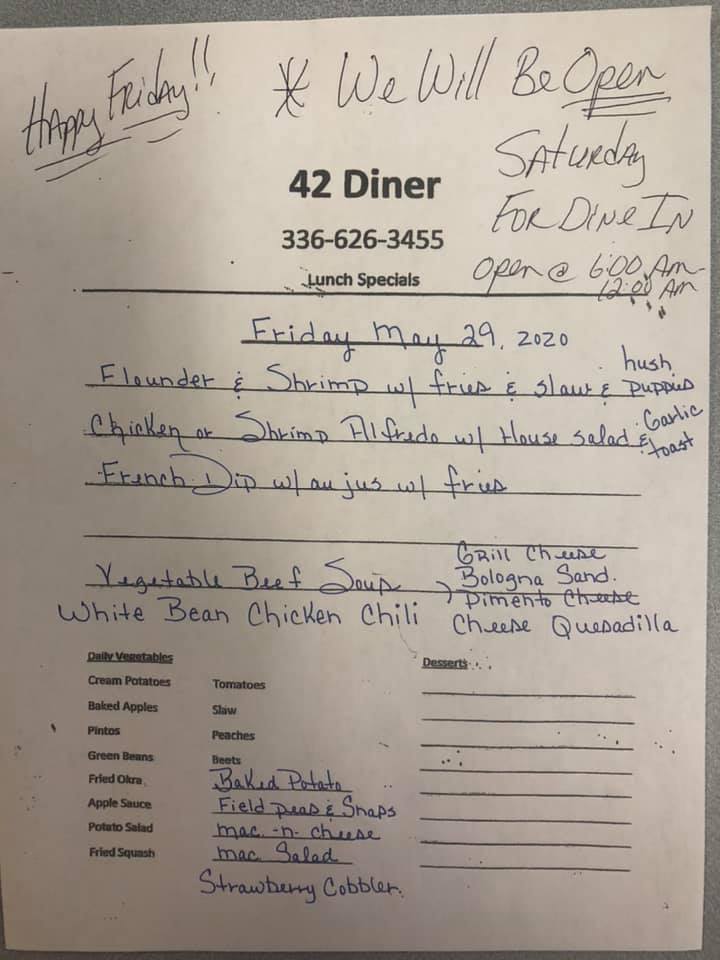 Happy Friday!!
* We Will Be Open
Saturday
For Dine In
Open @ 6:00 Am-
12:00 Am
42 Diner
336-626-3455
Lunch Specials
Friday May 29, 2020
Flounder & Shrimp w/ fries & slaw & hush puppies
Chicken or Shrimp Alfredo w/ House salad & Garlic toast
French Dip w/ au jus w/ fries
Vegetable Beef Soup
White Bean Chicken Chili
Grill Cheese
Bologna Sand.
Pimento Cheese
Cheese Quesadilla
Daily Vegetables
Cream Potatoes
Baked Apples
Pintos
Green Beans
Fried Okra
Apple Sauce
Potato Salad
Fried Squash
Tomatoes
Slaw
Peaches
Beets
Baked Potato
Field peas & Snaps
mac -n- cheese
mac Salad
Strawberry Cobbler.
Desserts